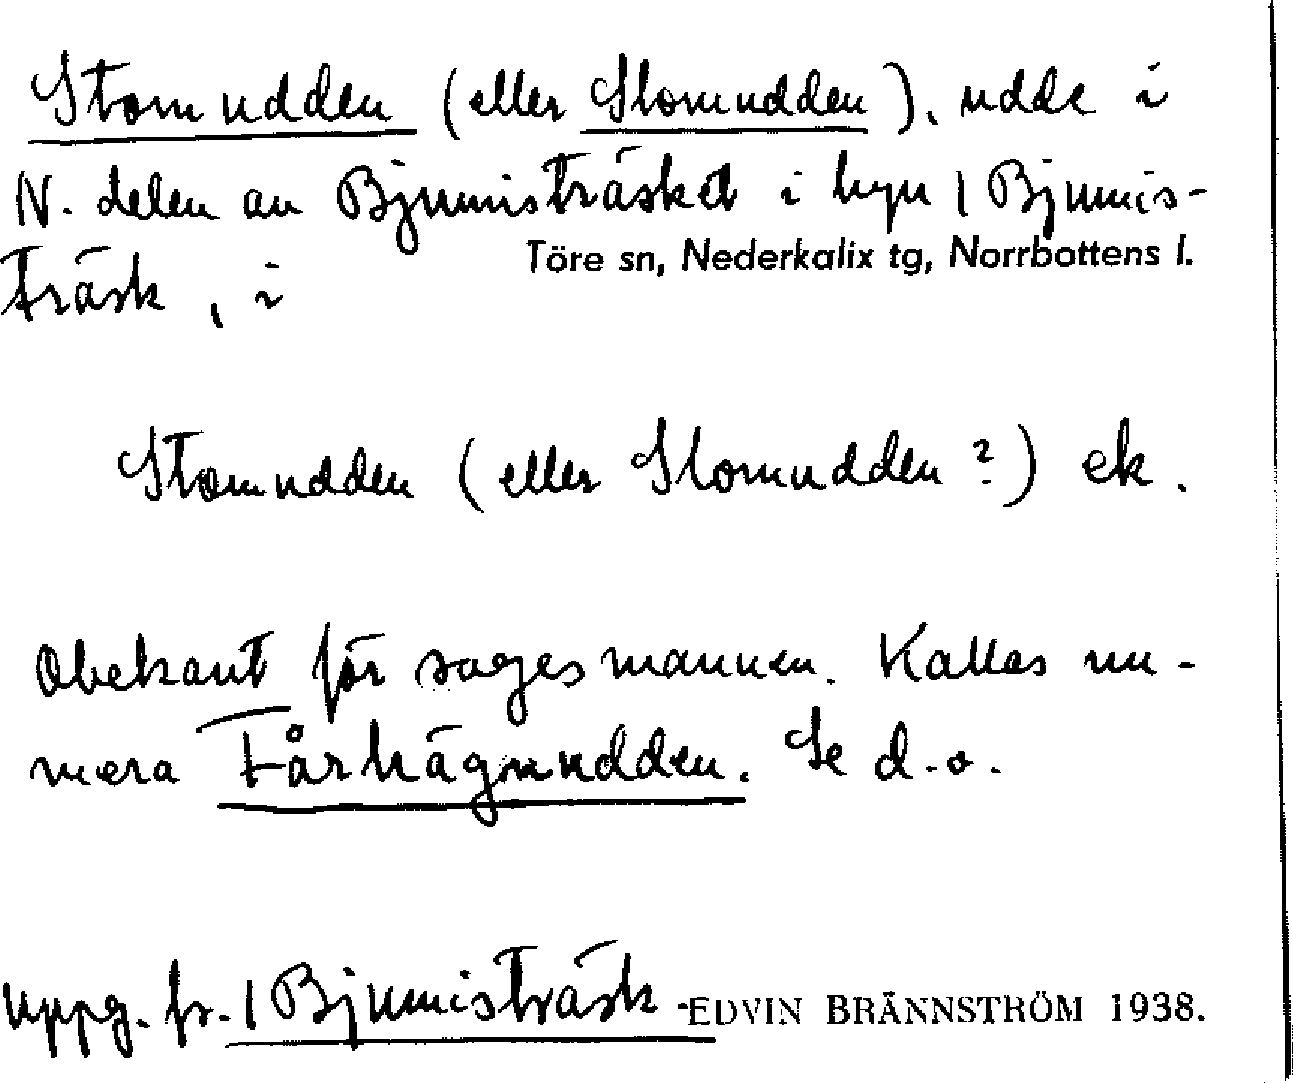 Stomudden (eller Slomudden), udde i
N. delen av Bjumisträsket i byn 1 Bjumis-
träsk, i
Töre sn, Nederkalix tg, Norrbottens l.
Stomudden (eller Slomudden?) ek.
Obekant för sagesmannen. Kallas nu-
mera Fårhägnudden. Se d.o.
Uppg. fr. 1 Bjumisträsk. EDVIN BRÄNNSTRÖM 1938.